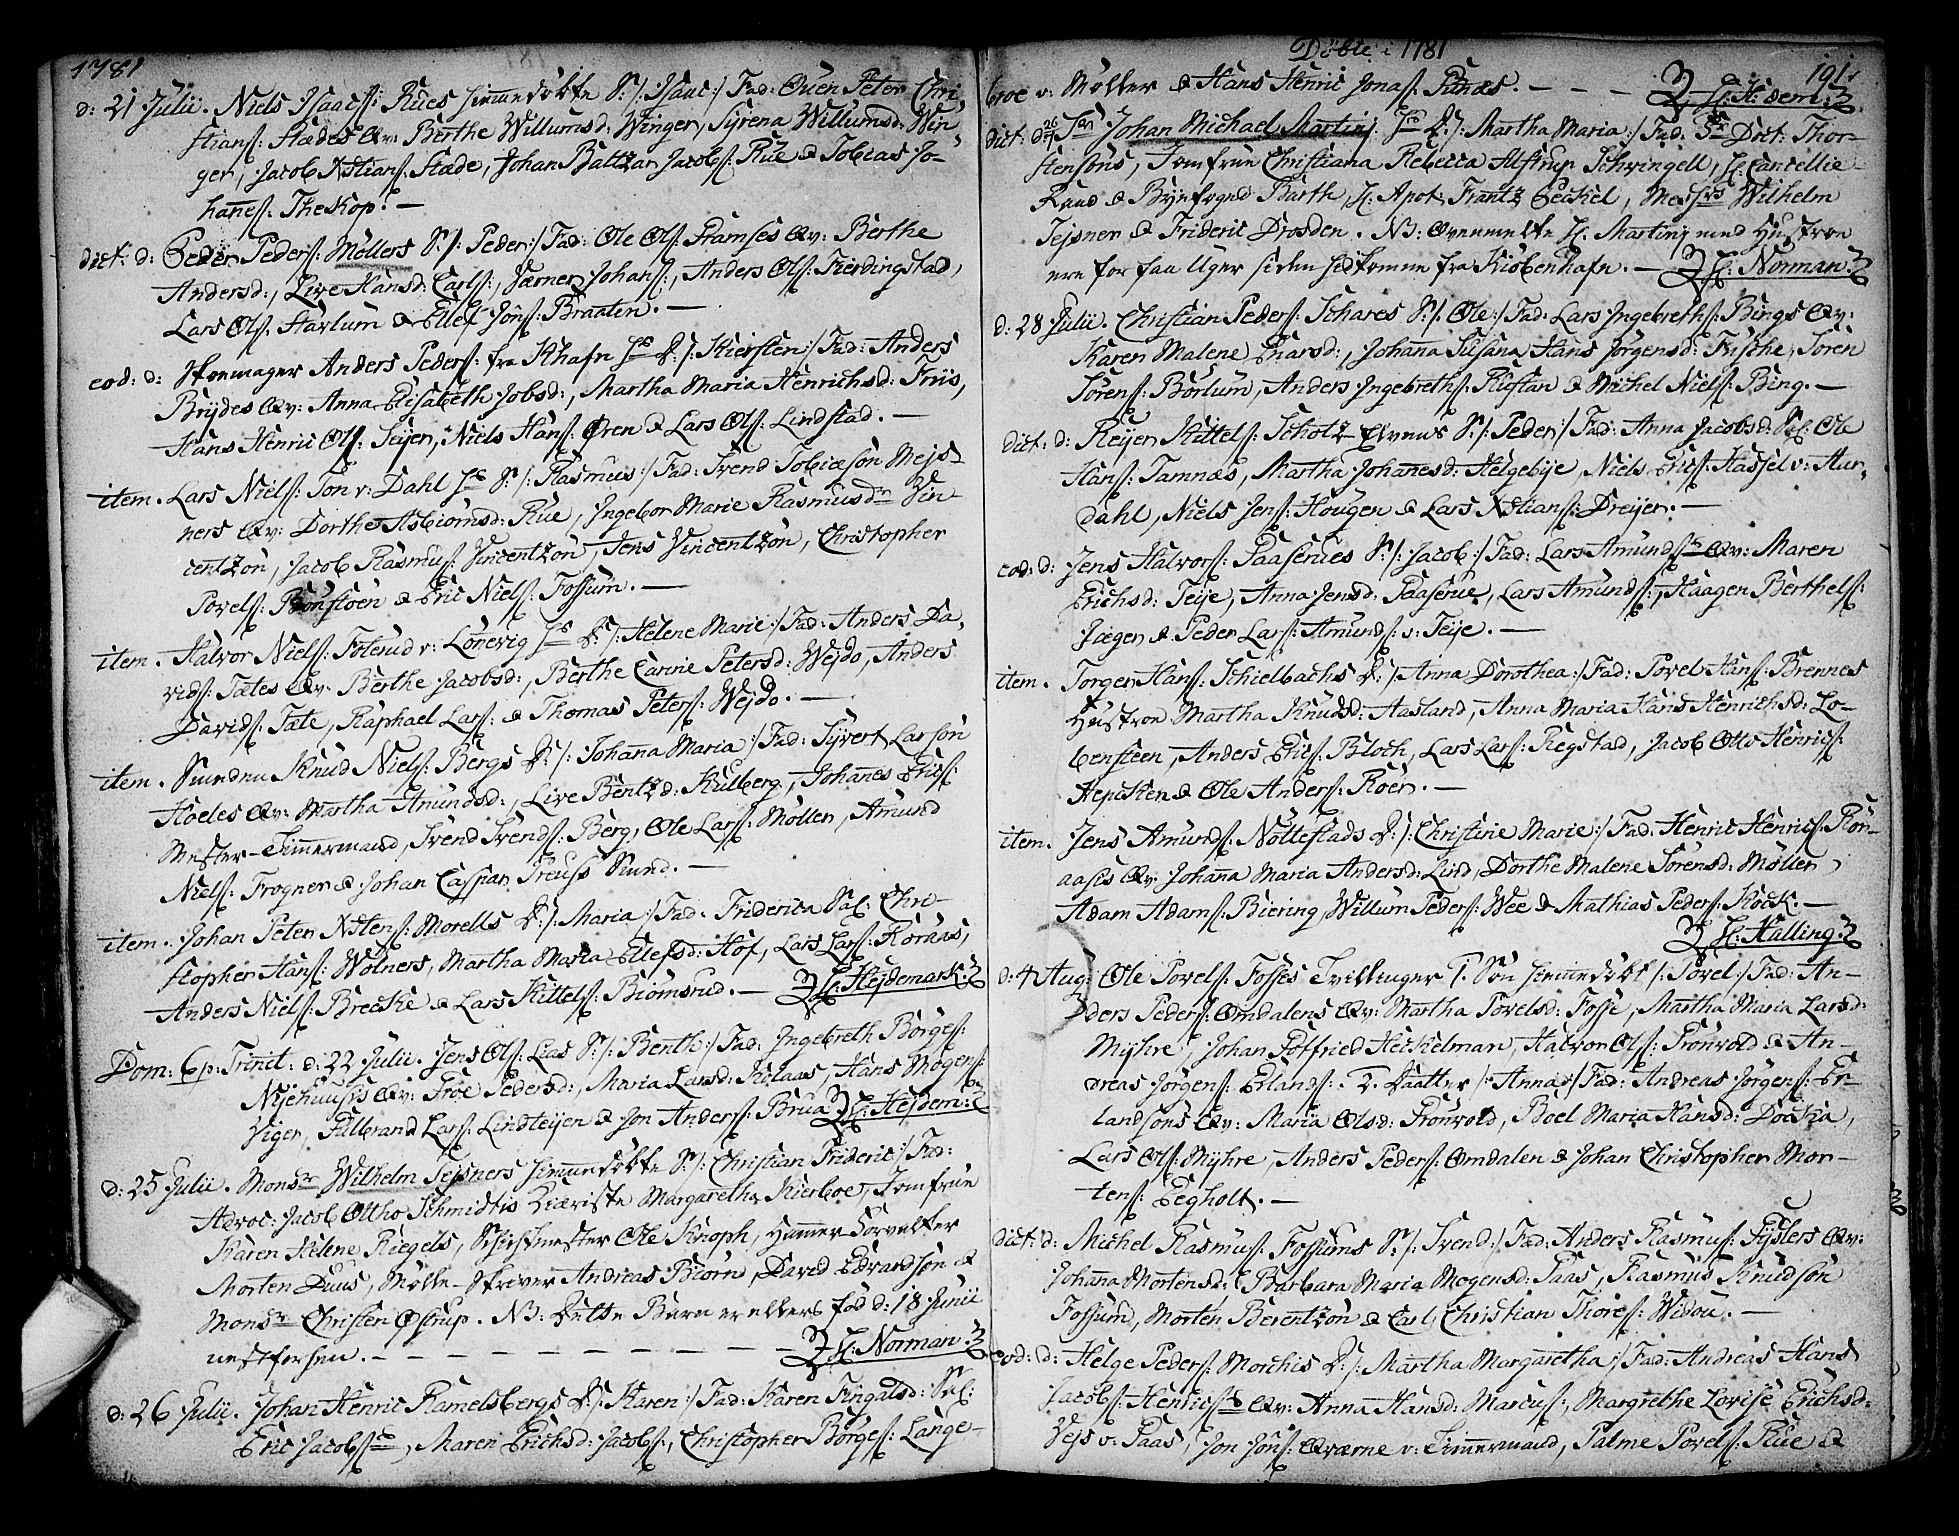 1781
d: 21 Julii. Niels Isaacs: Rues hiemmedøbte S:/: Isaac:/ Fad: Qven Peter Chri-
stians: Stædes Qv: Berthe Willumsd: Winger, Syrena Willumsd: Win-
ger, Jacob Xstians: Stæde, Johan Baltzar Jacobs: Rue & Tobias Jo-
hannes: Theskop. —
dict: d: Peder Peders: Møllers S:/: Peder:/ Fad: Ole Ols: Stamses Qv: Berthe
Andersd:, Live Hansd: Carls:, Værner Johans:, Anders Ols: Fierdingstad,
Lars Ols: Starlum & Ellef Jons: Braaten. —
eod: d: Skomager Anders Peders: fra Khafn D:/: Kiersten:/ Fad: Anders
Brydes Qv: Anna Elisabeth Jobsd:, Martha Maria Henrichsd: Friis,
Hans Henric Ols: Seyer, Niels Hans: Øren & Lars Ols: Lindstad. —
item. Lars Niels: Ton v: Dahl S:/: Rasmus:/ Fad: Svend Tobiæsøn Mejs-
ners Qv: Dorthe Asbiørnsd: Rue, Ingebor Marie Rasmusdr Vin-
centzøn, Jacob Rasmus: Vincentzøn, Jens Vincentzøn, Christopher
Povels: Trønstøen & Eric Niels: Fossum. —
item. Halvor Niels: Folerud v: Lønevig D:/: Helene Marie:/ Fad: Anders Da-
vids: Tætes Qv: Berthe Jacobsd:, Berthe Carine Petersd: Wejdo, Anders
Davids: Tæte, Raphael Lars: & Thomas Peters: Wejdo. —
item. Knud Niels: Bergs D:/: Johanna Maria:/ Fad: Syvert Larsøn
Hoeles Qv: Martha Amundsd:, Live Bentzd: Kulberg, Johannes Erics:
Mester-Timmermand, Svend Svends: Berg, Ole Lars: Møller, Amund
Niels: Trogner & Johan Caspar Treuss Smud. —
item. Johan Peter Xstens: Morells D:/: Maria:/ Fad: Friderica Sal: Chri-
stopher Hans: Wølners, Martha Maria Ellefsd: Hof, Lars Lars: Røraas,
Anders Niels: Brecke & Lars Kittels: Biørnsrud. — H: Hejdemark.
Dom: 6 p: Trinit: d: 22 Julii. Jens Ols: Lias S:/: Benth:/ Fad: Ingebreth Børges:
Nyehuuses Qv: Troe Pedersd:, Maria Larsd: Kolaas, Hans Mogens:
Viger, Gulbrand Lars: Lindteijen & Jon Anders: Brua H: Hejdem:
d: 25 Julii. Monsr Wilhelm Tejsners hiemmedøbte S:/: Christian Frideric:/ Fad:
Advoc: Jacob Ottho Schmidtis Kiæriste Margaretha Kierboe, Jomfrue
Karen Helene Riegels, Schichtmester Ole Knoph, Hammer-Forvalter
Morten Duus, Mølle-Skriver Andreas Biørn, David Edvardsøn &
Monsr Christen Østrup. NB: Dette Barn er ellers fød d: 18 Junii
nestforhen. — — — H: Norman.
d: 26 Julii. Johan Henric Ramelsbergs D:/: Karen:/ Fad: Karen Fingalsd: Sal:
Eric Jacobs:, Maren Erichsd: Jacobs:, Christopher Børges: Lange-
Døbte i 1781
191.
broe v: Møller & Hans Henric Jonas: Funæs. — — — H: H:dem:
dict: d 26/7 Hr Johan Michael Martinj D:/: Martha Maria:/ Fad: Doct: Thor-
stensøns, Jomfrue Christiana Rebecca Alstrup Schvingell, H: Cancellie-
Raad & Byefogd Barth, H: Apot: Frantz Peckel, Messrs Wilhelm
Tejsner & Frideric Drosden. NB: Ovenmelte H: Martinj med Hustroe
ere for faa Uger siden hidkomne fra Kiøbenhafn. — H: Norman.
d: 28 Julii. Christian Peders: Schares S:/: Ole:/ Fad: Lars Ingebreths: Bings Qv:
Karen Malene Enarsd:, Johanna Susana Hans Jørgensd: Fische, Søren
Sørens: Børlum, Anders Ingebreths: Rustan & Michel Niels: Bing. —
dict: d: Reijer Kittels: Scholtz Elvens S:/: Peder:/ Fad: Anna Jacobsd: Sal: Ole
Hans: Tamnæs, Martha Johannesd: Helgebye, Niels Erics: Hassel v: Aur-
dahl, Niels Jens: Hougen & Lars Xstians: Dreijer. —
eod: d: Jens Halvors: Saaserues S:/: Jacob:/ Fad: Lars Amunds: Qv: Maren
Erichsd: Teije, Anna Jensd: Saaserue, Lars Amunds:, Haagen Berthels:
Jæger & Peder Lars: Amunds: v: Teije. —
item. Torger Hans: Schielbachs D:/ Anna Dorothea:/ Fad: Povel Hans: Brennes
Hustroe Martha Knudsd: Aasland, Anna Maria Hans Henrichsd: Lo-
bensteen, Anders Erics: Bloch, Lars Lars: Regstad, Jacob Otto Henrics:
Hepisken & Ole Anders: Røer. —
item. Jens Amunds: Nøttestads D:/: Christine Marie:/ Fad: Henric Henrics: Røn-
aases Qv: Johanna Maria Andersd: Lind, Dorthe Malene Sørensd: Møller
Adam Adams: Biering, Willum Peders: Wee & Mathias Peders: Kock. —
H: Halling.
d: 4 Aug: Ole Povels: Fosses Tvillinger 1. Søn hiemmedøbt /: Povel:/ Fad: An-
ders Peders: Omdalens Qv: Martha Povelsd: Fosse, Martha Maria Larsd:
Myhre, Johan Gotfried Heckelman, Halvor Ols: Grønvold & An-
dreas Jørgens: Erlands: 2. Daatter /: Anna:/ Fad: Andreas Jørgens: Er-
landsøns Qv: Maria Olsd: Grønvold, Boel Maria Hansd: Docka,
Lars Ols: Myhre, Anders Peders: Omdalen & Johan Christopher Mor-
tens: Egholt. —
dict: d: Michel Rasmus: Fossums S:/: Svend:/ Fad: Anders Rasmus: Gyslers Qv:
Johanna Mortensd:, Barbara Maria Mogensd: Saas, Rasmus Knudsøn
Fossum, Morten Berentzøn & Carl Christian Thores: Widou. —
eod: d: Helge Peders: Morchis D:/: Martha Margaretha:/ Fad: Andreas Hans
Jacobs: Henrics: Qv: Anna Hansd: Marcus:, Margrethe Lovise Erichsd:
Vejs v: Saas, Jon Jons: Qværne v: Timmermand, Palme Povels: Rue &